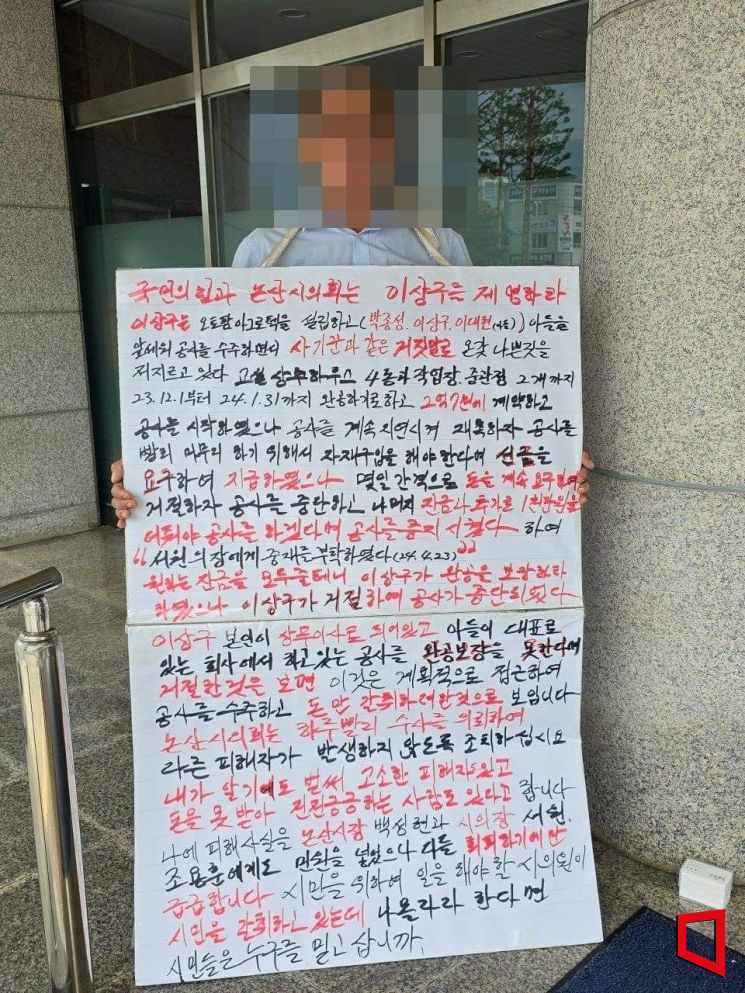 국민의힘과 논산시의회는 이상구를 제명하라
이상구는 오토팜아그로텍을 설립하고 (박종성. 이상구. 이대현(아들)) 아들을
앞세워 공사를 수주하면서 사기꾼과 같은 거짓말로 온갖 나쁜짓을
저지르고 있다 고설 상무하우스 4동과 작업장. 중관정 2개까지
23.12.1부터 24.1.31까지 완공하기로하고 2억7천에 계약하고
공사를 시작하였으나 공사를 계속 지연시켜 재촉하자 공사를
빨리 마무리 하기 위해서 자재구입을 해야한다며 선금을
요구하여 지급하였으나 몇일 간격으로 돈을 계속 요구하여
거절하자 공사를 중단하고 나머지 잔금과 추가로 1천만원을
더줘야 공사를 하겠다며 공사를 중지 시켰다 하여
"서원 의장에게 중재를 부탁하였다(24.4.23)"
원하는 잔금을 모두줄테니 이상구가 완공을 보장하라
하였으나 이상구가 거절하여 공사가 중단되었다
이상구 본인이 상무이사로 되어있고 아들이 대표로
있는 회사에서 하고있는 공사를 완공보장을 못한다며
거절한것을 보면 이것은 계획적으로 접근하여
공사를 수주하고 돈만 갈취하려한것으로 보입니다
논산시의회는 하루빨리 수사를 의뢰하여
다른 피해자가 발생하지 않도록 조치하십시요
내가 알기에도 벌써 고소한 피해자있고
돈을 못 받아 전전긍긍하는 사람도 있다고 합니다
나에 피해사실을 논산시장 백성현과 시의장 서원.
조용훈에게도 민원을 넣었으나 다들 회피하기에만
급급합니다 시민을 위하여 일을 해야할 시의원이
시민을 갈취하고 있는데 나몰라라 한다면
시민들은 누구를 믿고 삽니까.